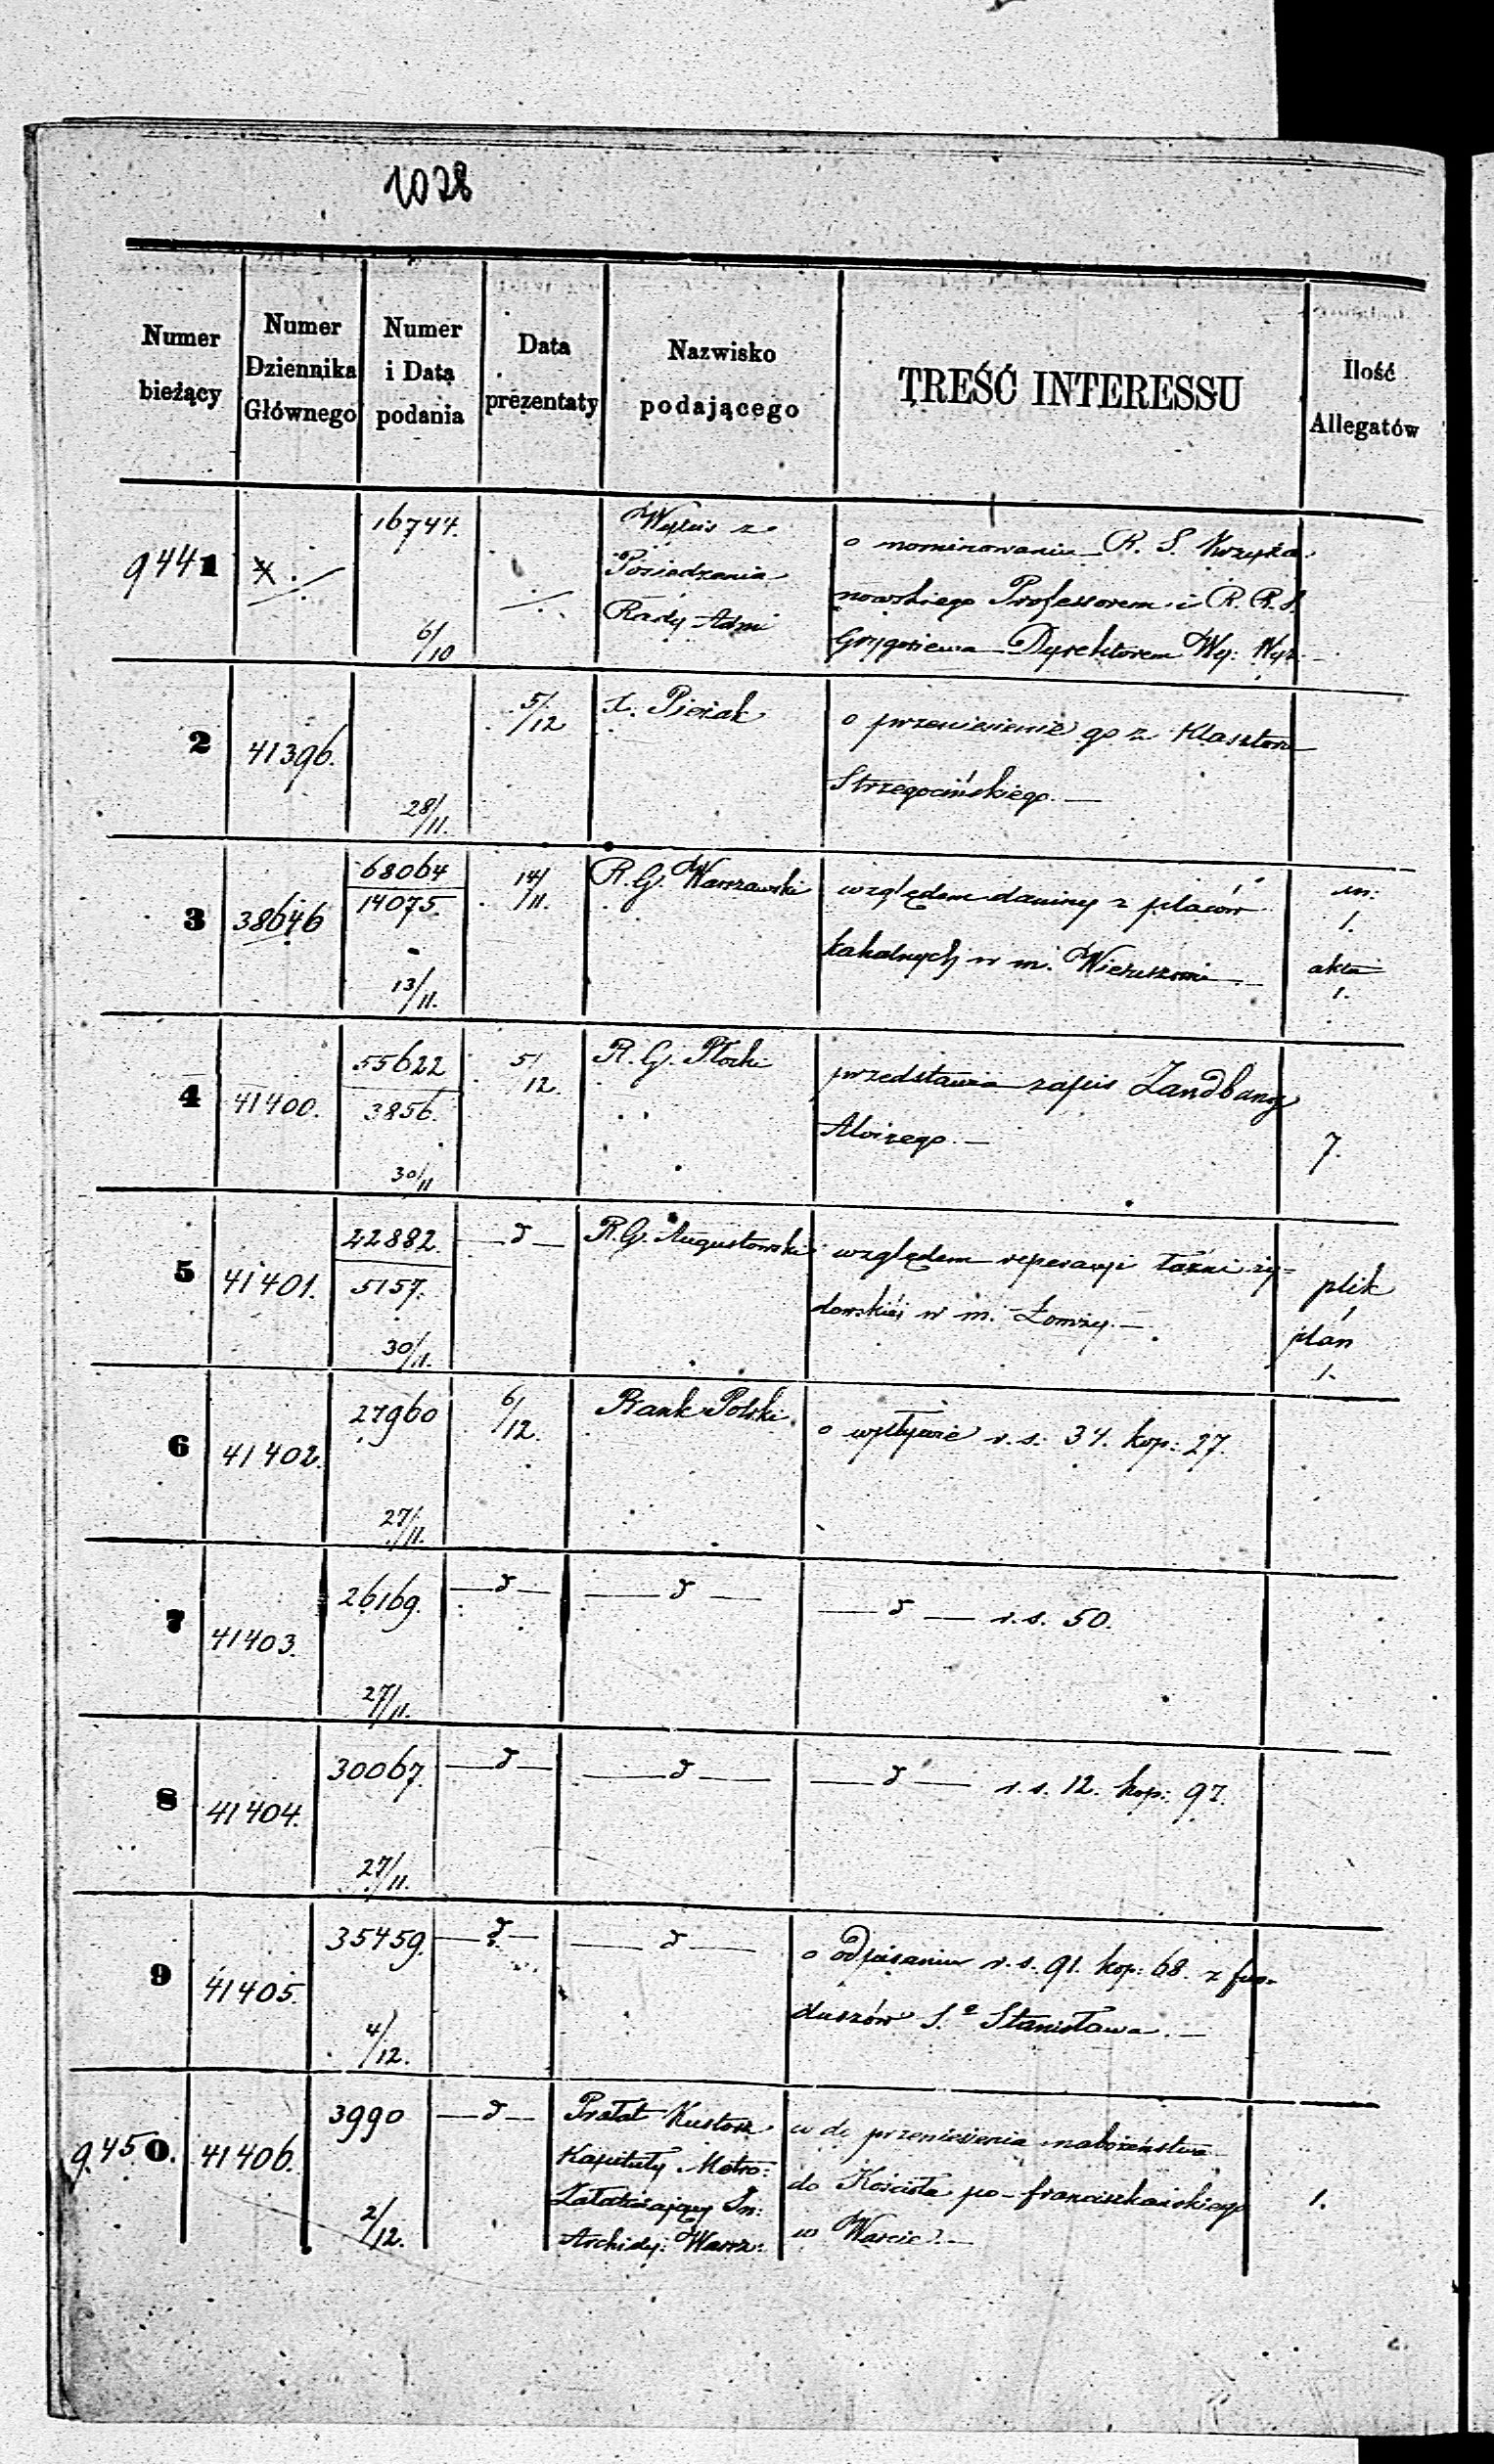 1028
Numer bieżący
Numer Dziennika Głównego
Numer i Data podania
Data prezentaty
Nazwisko podającego
TREŚĆ INTERESSU
Ilość Allegatów
9441
16744.
6/10
Wypis z
Posiedzenia
Rady Adm
o nominowaniu R. S. Krzyża
nowskiego Professorem i R. R. S.
Grygoriewa Dyrektorem Wy: Wyz.
2
41396.
28/11.
5/12
X. Pieżak
o przeniesienie go z Klasztoru
Strzegocińskiego. —
3
38646
68064
14075.
13/11.
14/11.
R. G. Warszawski
względem daniny z placów
kahalnych w m. Wieruszowie —
un:
1.
akta
1.
4
41400.
55622
3856.
30/11
5/12.
R. G. Płocki
przedstawia zapis Landbang
Aloizego. —
7.
5
41401.
42882.
5157.
30/11.
— d —
R. G. Augustowski
względem reperacyi łaźni ży=
dowskiéj w m. Łomży. —
plik
1
plan
1.
6
41402.
27960
27/11.
6/12.
Bank Polski
o wpływie r. s. 34. kop: 27.
7
41403.
26169.
27/11.
— d —
— d —
— d — r. s. 50.
8
41404.
30067.
27/11.
— d —
— d —
— d — r. s. 12. kop: 97.
9
41405.
35459.
4/12.
— d —
— d —
o odpisaniu r. s. 91. kop: 68. z fun-
duszów S.º Stanisława. —
9450.
41406.
3990
2/12.
— d —
Prałat Kustosz
Kapituły Metro:
Załatwiający In:
Archidy: Warsz:
w dę przeniesienia nabożeństwa
do Kościoła po-franciszkańskiego
w Warcie. —
1.